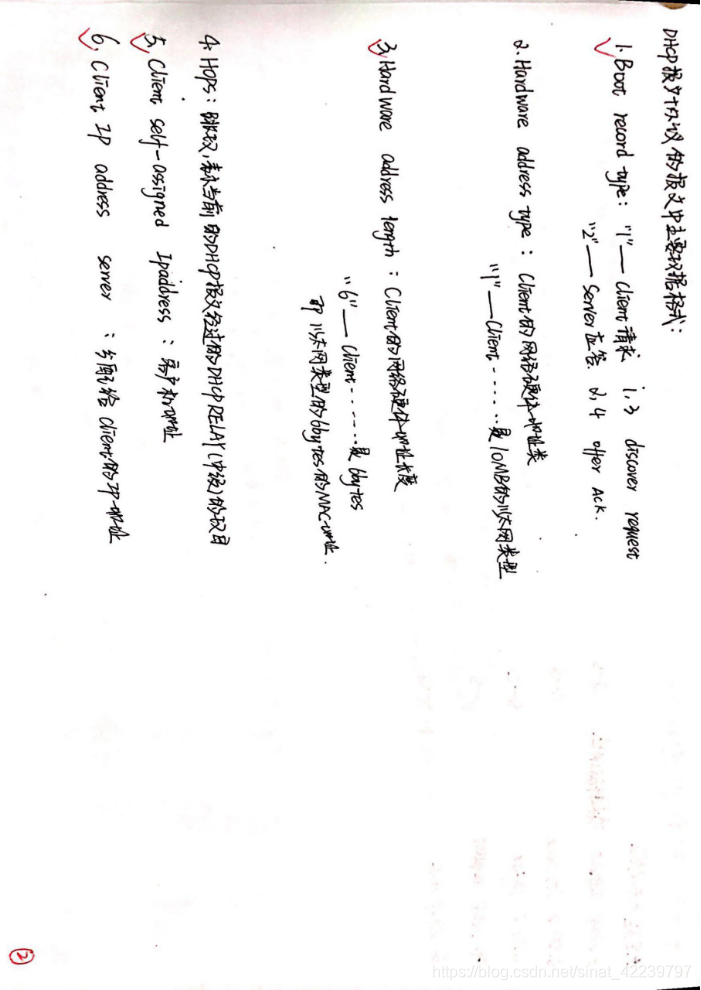 DHCP报文协议的报文中主要数据格式:
1. Boot record type: "1"— Client请求 1,3 discover request
"2"— Server应答. 2,4 offer Ack.
2. Hardware address type: Client的网络硬体地址类
"1"—Client......是10MB的以太网类型
3. Hardware address length: Client的网络硬体地址长度
"6"— Client.......是6bytes
即以太网类型的6bytes的MAC地址.
4. Hops: 跳数,表示当前的DHCP报文经过的DHCP RELAY(中继)的数目
5. Client self-assigned Ipaddress: 客户机地址
6. Client IP address server: 分配给Client的IP地址
2
https://blog.csdn.net/sinat_42239797